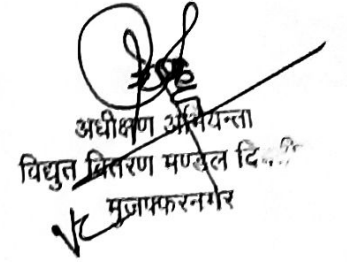 अधीक्षण अभियन्ता
विद्युत वितरण मण्डल
मुजफ्फरनगर